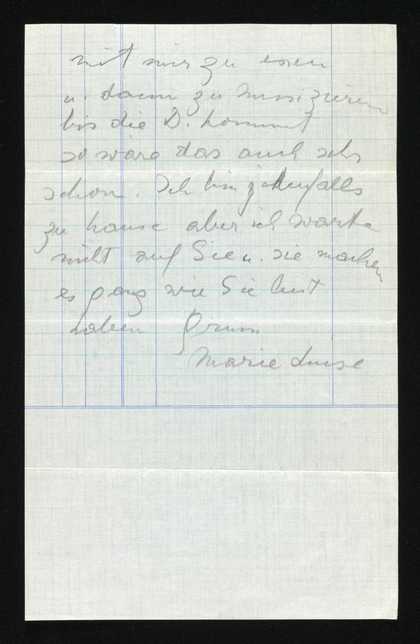 mit mir zu essen
u. dann zu musizieren
bis die D. kommt
so wäre das auch sehr
schön. Ich bin jedenfalls
zu hause aber ich warte
nicht auf Sie u. sie machen
es ganz wie Sie Lust
haben
Marie Luise